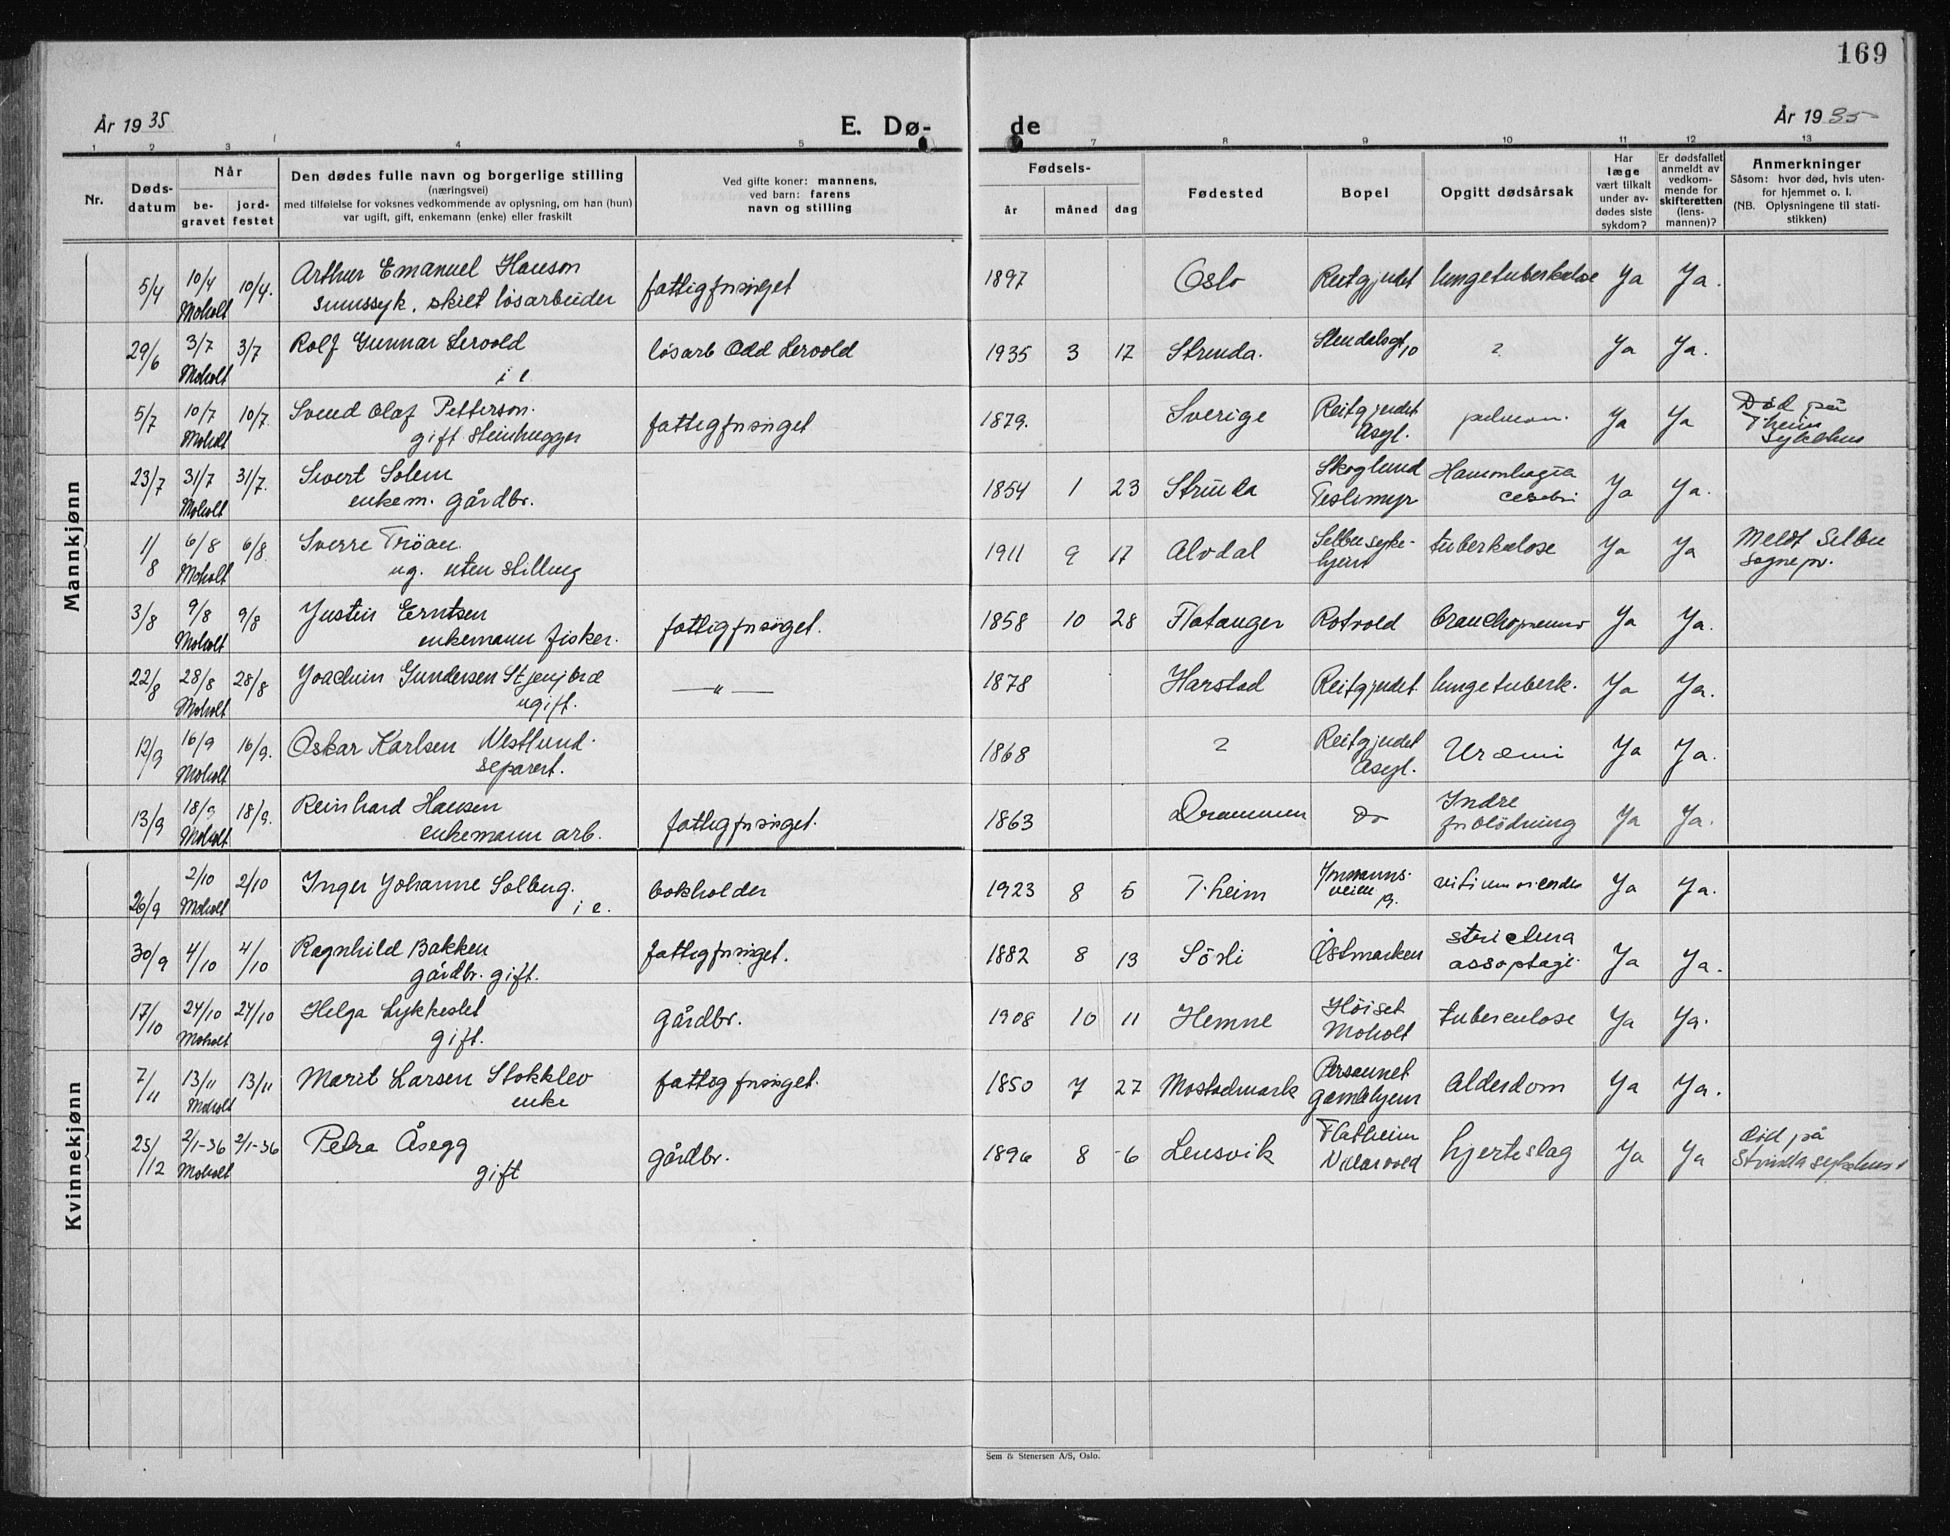 169
År 1935
E. Dø-
de
År 1935
1 2 3 4 5 7 8 9 10 11 12 13
Nr.
Døds-
datum
Når
be-
gravet
jord-
festet
Den dødes fulle navn og borgerlige stilling
(næringsvei)
med tilføielse for voksnes vedkommende av oplysning, om han (hun)
var ugift, gift, enkemann (enke) eller fraskilt
Ved gifte koner: mannens,
ved barn: farens
navn og stilling
Fødsels-
år måned dag
Fødested
Bopel
Opgitt dødsårsak
Har
læge
vært tilkalt
under av-
dødes siste
sykdom?
Er dødsfallet
anmeldt av
vedkom-
mende for
skifteretten
(lens-
mannen)?
Anmerkninger
Såsom: hvor død, hvis uten-
for hjemmet o. l.
(NB. Oplysningene til stati-
stikken)
Mannkjønn
5/4 10/4 Moholt 10/4. Arthur Emanuel Hanson
sinnssyk, skilt løsarbeider fattigforsørget 1897 Oslo Reitgjerdet lungetuberkulose Ja Ja.
29/6 3/7 Moholt 3/7 Rolf Gunnar Lervold
i e. løsarb Odd Lervold 1935 3 17 Strinda. 10 ? Ja Ja.
5/7 10/7 Moholt 10/7. Svend Olaf Petterson.
gift steinhugger fattigforsørget 1879. Sverige Reitgjerdet
Asyl. Ja Ja Død på
T.heim
sykehus
23/7 31/7 Moholt 31/7. Sivert Solem
enkem. gårdbr. 1854 1 23 Strinda Skoglund
Teslimyr Ja Ja.
1/8 6/8 Moholt 6/8. Sverre Trøan
ug. uten stilling 1911 9 17 Alvdal Selbu syke-
hjem tuberkulose Ja Ja Meldt Selbu
sognepr.
3/8 9/8 Moholt 9/8 Justin Erntsen
enkemann fisker. fattigforsørget. 1858 10 28 Flatanger Rotvold Ja Ja.
22/8 28/8 Moholt 28/8 Joachim Gundersen
ugift. —„— 1878 Harstad Reitgjerdet lungetuberk. Ja Ja.
12/9 16/9 Moholt 16/9. Oskar Karlsen Westlund.
separert. 1868 ? Reitgjerdet
Asyl. Uræmi Ja Ja.
13/9 18/9 Moholt 18/9. Reinhard Hansen
enkemann arb. fattigforsørget. 1863 Drammen Do Indre
forblødning Ja Ja.
Kvinnekjønn
26/9 2/10 Moholt 2/10 Inger Johanne Solberg.
i e. bokholder 1923 8 5 T.heim vitium cordis Ja Ja.
30/9 4/10 4/10 Ragnhild Bakken
gårdbr. gift. fattigforsørget. 1882 8 13 Sörli Östmarken Ja Ja.
17/10 24/10 Moholt 24/10 Helga Lykkeslet
gift. gårdbr. 1908 10 11 Hemne Höiset
Moholt tuberculose Ja Ja.
7/11 13/11 Moholt 13/11 Marit Larsen Stokklev
enke fattig forsørget. 1850 7 27 Mostadmark
gamlehjem Alderdom Ja Ja.
25/12 2/1-36 Moholt 2/1-36 Petra Åsegg
gift gårdbr. 1896 8 6 Lensvik Flatheim hjerteslag Ja Ja død på
Strinda sykehus
Sem & Stenersen A/S, Oslo.